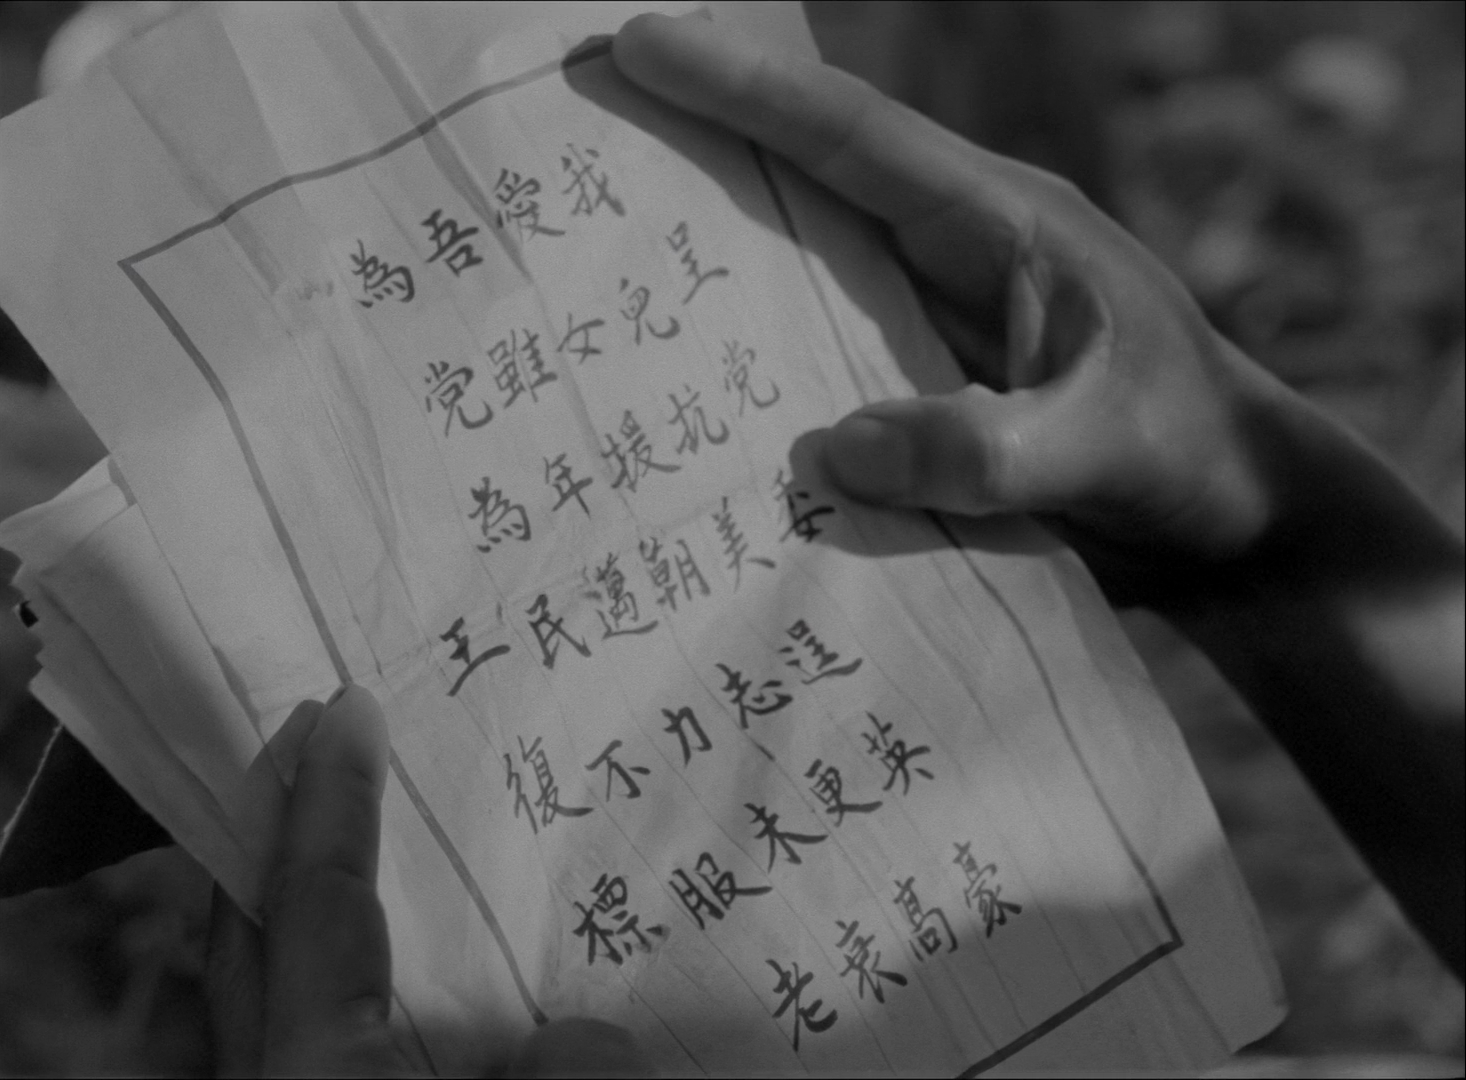 呈党委逞英豪
我兒抗美志更高
愛女援朝力未衰
吾雖年邁不服老
為党為民
王復標